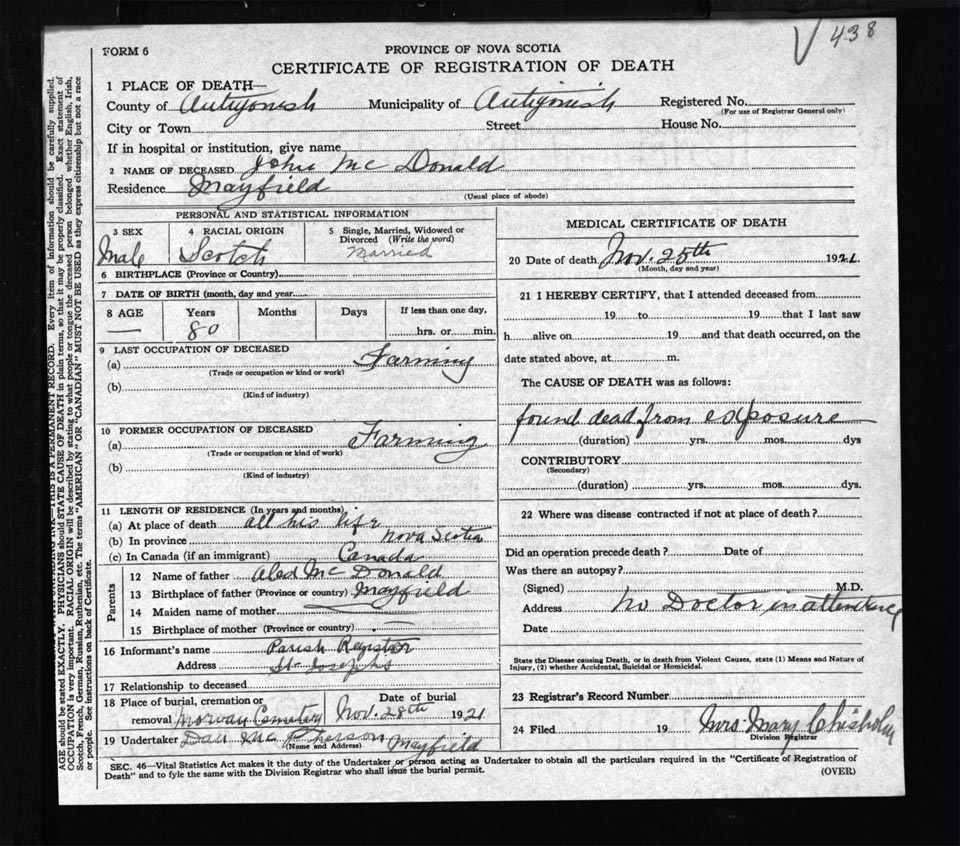 FORM 6
438
PROVINCE OF NOVA SCOTIA
CERTIFICATE OF REGISTRATION OF DEATH
1 PLACE OF DEATH—
County of Antigonish Municipality of Antigonish Registered No.
(For use of Registrar General only)
City or Town Street House No.
If in hospital or institution, give name
2 NAME OF DECEASED John Mc Donald
Residence Mayfield
(Usual place of abode)
PERSONAL AND STATISTICAL INFORMATION
3 SEX 4 RACIAL ORIGIN 5 Single, Married, Widowed or
Divorced (Write the word)
Male Scotch Married
6 BIRTHPLACE (Province or Country)
7 DATE OF BIRTH (month, day and year)
8 AGE Years Months Days If less than one day,
— 80 hrs. or min.
9 LAST OCCUPATION OF DECEASED
(a) Farming
(Trade or occupation or kind or work)
(b)
(Kind of industry)
10 FORMER OCCUPATION OF DECEASED
(a) Farming
(Trade or occupation or kind of work)
(b)
(Kind of industry)
11 LENGTH OF RESIDENCE (In years and months)
(a) At place of death all his life
(b) In province Nova Scotia
(c) In Canada (if an immigrant) Canada
Parents
12 Name of father Mc Donald
13 Birthplace of father (Province or country) Mayfield
14 Maiden name of mother
15 Birthplace of mother (Province or country)
16 Informant's name Parish Registor
Address St. Josephs
17 Relationship to deceased
18 Place of burial, cremation or Date of burial
removal Cemetery Nov. 28th 1921
19 Undertaker Dan Mc Pherson Mayfield
(Name and Address)
MEDICAL CERTIFICATE OF DEATH
20 Date of death Nov. 25th 1921
(Month, day and year)
21 I HEREBY CERTIFY, that I attended deceased from
19 to 19 that I last saw
h alive on 19 and that death occurred, on the
date stated above, at m.
The CAUSE OF DEATH was as follows:
found dead from exposure
(duration) yrs. mos. dys
CONTRIBUTORY
(Secondary)
(duration) yrs. mos. dys.
22 Where was disease contracted if not at place of death?
Did an operation precede death? Date of
Was there an autopsy?
(Signed) M.D.
Address No Doctor in attendance
Date
State the Disease causing Death, or in death from Violent Causes, state (1) Means and Nature of
Injury, (2) whether Accidental, Suicidal or Homicidal.
23 Registrar's Record Number
24 Filed 19 Mrs. Mary Chisholm
Division Registrar
SEC. 46—Vital Statistics Act makes it duty of the Undertaker or person acting as Undertaker to obtain all the particulars required in the "Certificate of Registration of
Death" and to fyle the same with the Division Registrar who shall issue the burial permit. (OVER)
THIS IS A PERMANENT RECORD. Every item of information should be carefully supplied.
AGE should be stated EXACTLY. PHYSICIANS should STATE CAUSE OF DEATH in plain terms, so that it may be properly classified. Exact statement of
OCCUPATION is very important. RACIAL ORIGIN will be described by stating to what people or tongue the deceased person belonged whether English, Irish,
Scotch, French, German, Russian, Ruthenian, etc. The terms "AMERICAN" OR "CANADIAN" MUST NOT BE USED as they express citizenship but not a race
or people. See instructions on back of Certificate.